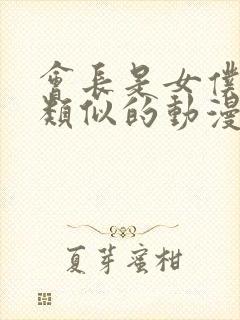 會長是女僕
類似的動漫
夏芽蜜柑